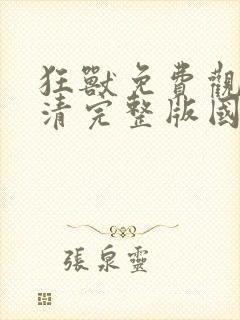 狂獸免費觀
清完整版國
張泉靈